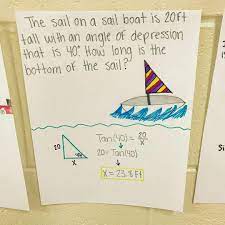 The sail on a sail boat is 20ft
tall with an angle of depression
that is 40° How long is the
bottom of the sail?
20
40
x
Tan(40) = 20/x
20 = Tan(40)
x = 23.8 Ft